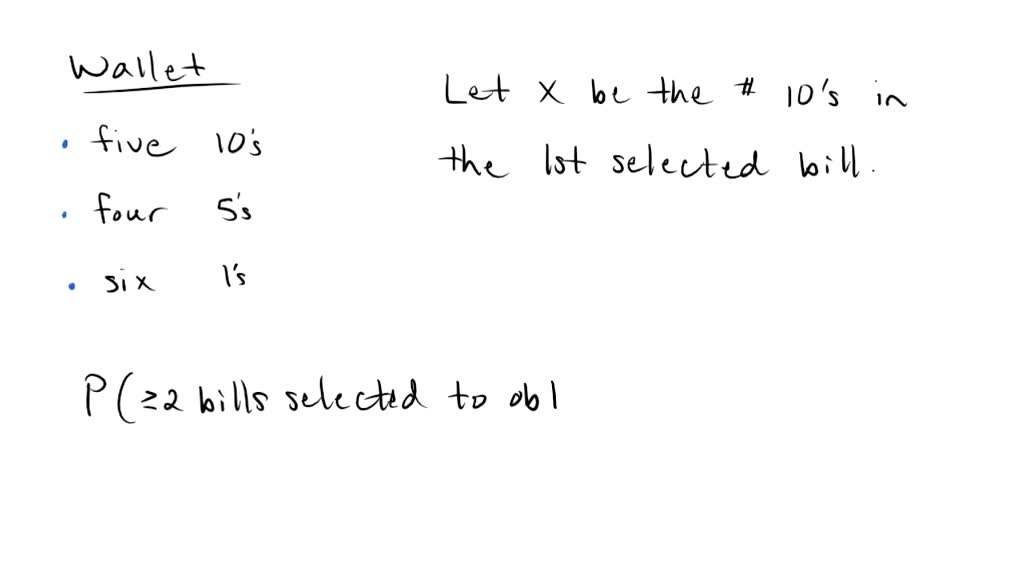 Wallet
• five 10's
• four 5's
• six 1's
Let X be the # 10's in
the 1st selected bill.
P(≥2 bills selected to ob